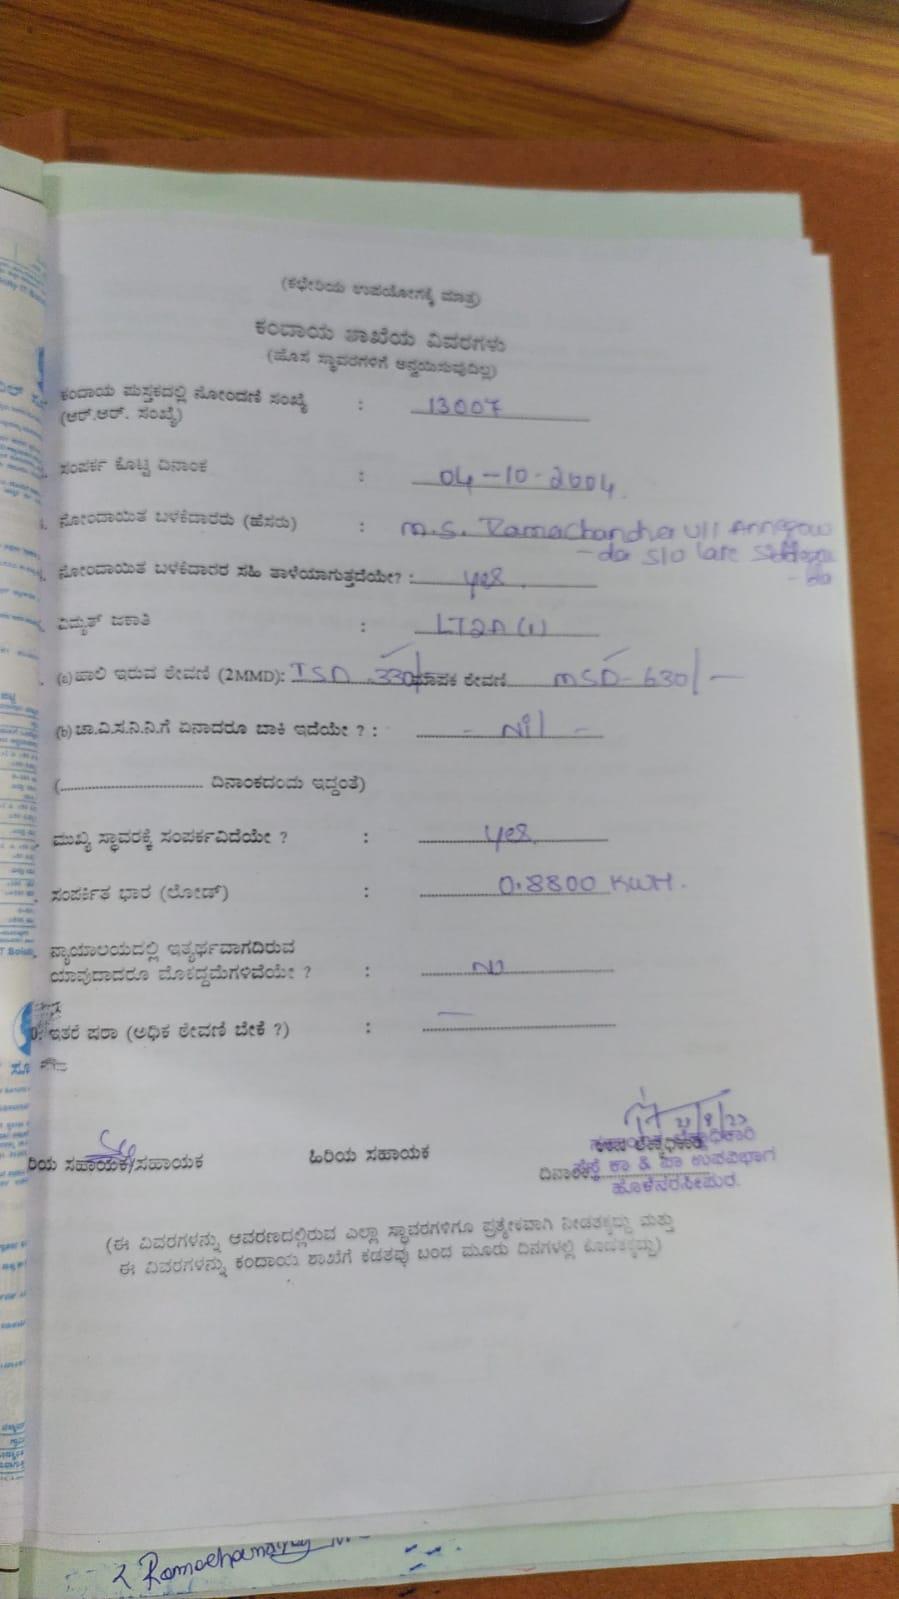 (ಕಛೇರಿಯ ಉಪಯೋಗಕ್ಕೆ ಮಾತ್ರ)
ಕಂದಾಯ ಶಾಖೆಯ ವಿವರಗಳು
(ಹೊಸ ಸ್ಥಾವರಗಳಿಗೆ ಅನ್ವಯಿಸುವುದಿಲ್ಲ)
ಕಂದಾಯ ಪುಸ್ತಕದಲ್ಲಿ ನೋಂದಣಿ ಸಂಖ್ಯೆ : 13007
(ಆರ್.ಆರ್. ಸಂಖ್ಯೆ)
ಸಂಪರ್ಕ ಕೊಟ್ಟ ದಿನಾಂಕ : 04-10-2004
ನೋಂದಾಯಿತ ಬಳಕೆದಾರರು (ಹೆಸರು) : m.s. Ramachandra U/I Annegow
-da S/O Late
ನೋಂದಾಯಿತ ಬಳಕೆದಾರರ ಸಹಿ ತಾಳೆಯಾಗುತ್ತದೆಯೇ? : yes
- da
ವಿದ್ಯುತ್ ಜಕಾತಿ : LT2A(1)
(a) ಹಾಲಿ ಇರುವ ಠೇವಣಿ (2MMD): ISD 330/- ಮಾಪಕ ಠೇವಣಿ MSD-630/-
(b) ಚಾ.ವಿ.ಸ.ನಿ.ನಿ.ಗೆ ಏನಾದರೂ ಬಾಕಿ ಇದೆಯೇ ? : - Nil -
(.................................. ದಿನಾಂಕದಂದು ಇದ್ದಂತೆ)
ಮುಖ್ಯ ಸ್ಥಾವರಕ್ಕೆ ಸಂಪರ್ಕವಿದೆಯೇ ? : yes
ಸಂಪರ್ಕಿತ ಭಾರ (ಲೋಡ್) : 0.8800 KWH.
ನ್ಯಾಯಾಲಯದಲ್ಲಿ ಇತ್ಯರ್ಥವಾಗದಿರುವ
ಯಾವುದಾದರೂ ಮೊಕದ್ದಮೆಗಳಿವೆಯೇ ? : NO
ಇತರೆ ಷರಾ (ಅಧಿಕ ಠೇವಣಿ ಬೇಕೆ ?) : —
ರಿಯ ಸಹಾಯಕ/ಸಹಾಯಕ ಹಿರಿಯ ಸಹಾಯಕ
ದಿನಾಂಕ
ಕಾ & ಪಾ ಉಪವಿಭಾಗ
ಹೊಳೆನರಸೀಪುರ.
(ಈ ವಿವರಗಳನ್ನು ಆವರಣದಲ್ಲಿರುವ ಎಲ್ಲಾ ಸ್ಥಾವರಗಳಿಗೂ ಪ್ರತ್ಯೇಕವಾಗಿ ನೀಡತಕ್ಕದ್ದು ಮತ್ತು
ಈ ವಿವರಗಳನ್ನು ಕಂದಾಯ ಶಾಖೆಗೆ ಕಡತವು ಬಂದ ಮೂರು ದಿನಗಳಲ್ಲಿ ಕೊಡತಕ್ಕದ್ದು)